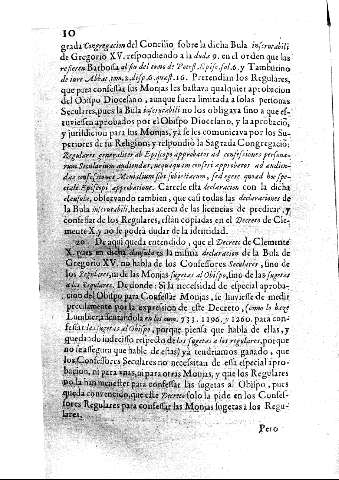 10
grada Congregacion del Concilio sobre la dicha Bula inscrutabili
de Gregorio XV. respondiendo à la duda 9. en el orden que las
refieren Barbosa al fin del tomo de Potest. Episc. fol. 6. y Tamburino
de iure Abbat. tom. 2. disp. 6. quæst. 16. Pretendian los Regulares,
que para confessar sus Monjas les bastava qualquier aprobacion
del Obispo Diocesano, aunque fuera limitada a solas personas
Seculares, pues la Bula inscrutabili no los obligava sino a que es-
tuviessen aprobados por el Obispo Diocesano, y la aprobació,
y jurisdiccion para sus Monjas, yà se les comunicava por los Su-
periores de su Religion; y responde la Sagrada Congregació;
Regulares generaliter ab Episcopo approbatos ad confessiones persona-
rum Sæcularium audiendas, nequaquam censeri approbatos ad audien-
das confessiones Monialium sibi subiectarum, sed egere quoad hoc spe-
ciale Episcopi approbatione. Careese esta declaracion con la dicha
clausula, observando tambien, que casi todas las declaraciones de
la Bula inscrutabili, hechas acerca de las licencias de predicar, y
confessar de los Regulares, están copiadas en el Decreto de Cle-
mente X. y no se podrà dudar de la identidad.
20 De aqui queda entendido, que el Decreto de Clemente
X. pues en dicha clausula es la misma declaracion de la Bula de
Gregorio XV. no habla de los Confessores Seculares, sino de
los Regulares, ni de las Monjas sugetas al Obispo, sino de las sugetas
a los Regulares. De donde: Si la necessidad de especial aproba-
cion del Obispo para Confessar Monjas, se huviesse de medir
precisamente por la expression de este Decreto, (como lo haze
Lumbier assentandola en los num. 731. 1296. y 1260. para con-
fessar las sugetas al Obispo, porque piensa que habla de ellas, y
quedando indecisso respecto de las sugetas a los regulares, porque
no se assegura que hable de ellas) yà tendriamos ganado, que
los Confessores Seculares no necessitan de essa especial apro-
bacion, ni para vnas, ni para otras Monjas, y que los Regulares
no la han menester para confessar las sugetas al Obispo, pues
queda convencido, que este Decreto solo la pide en los Confes-
sores Regulares para confessar las Monjas sugetas à los Regu-
lares.
Pero